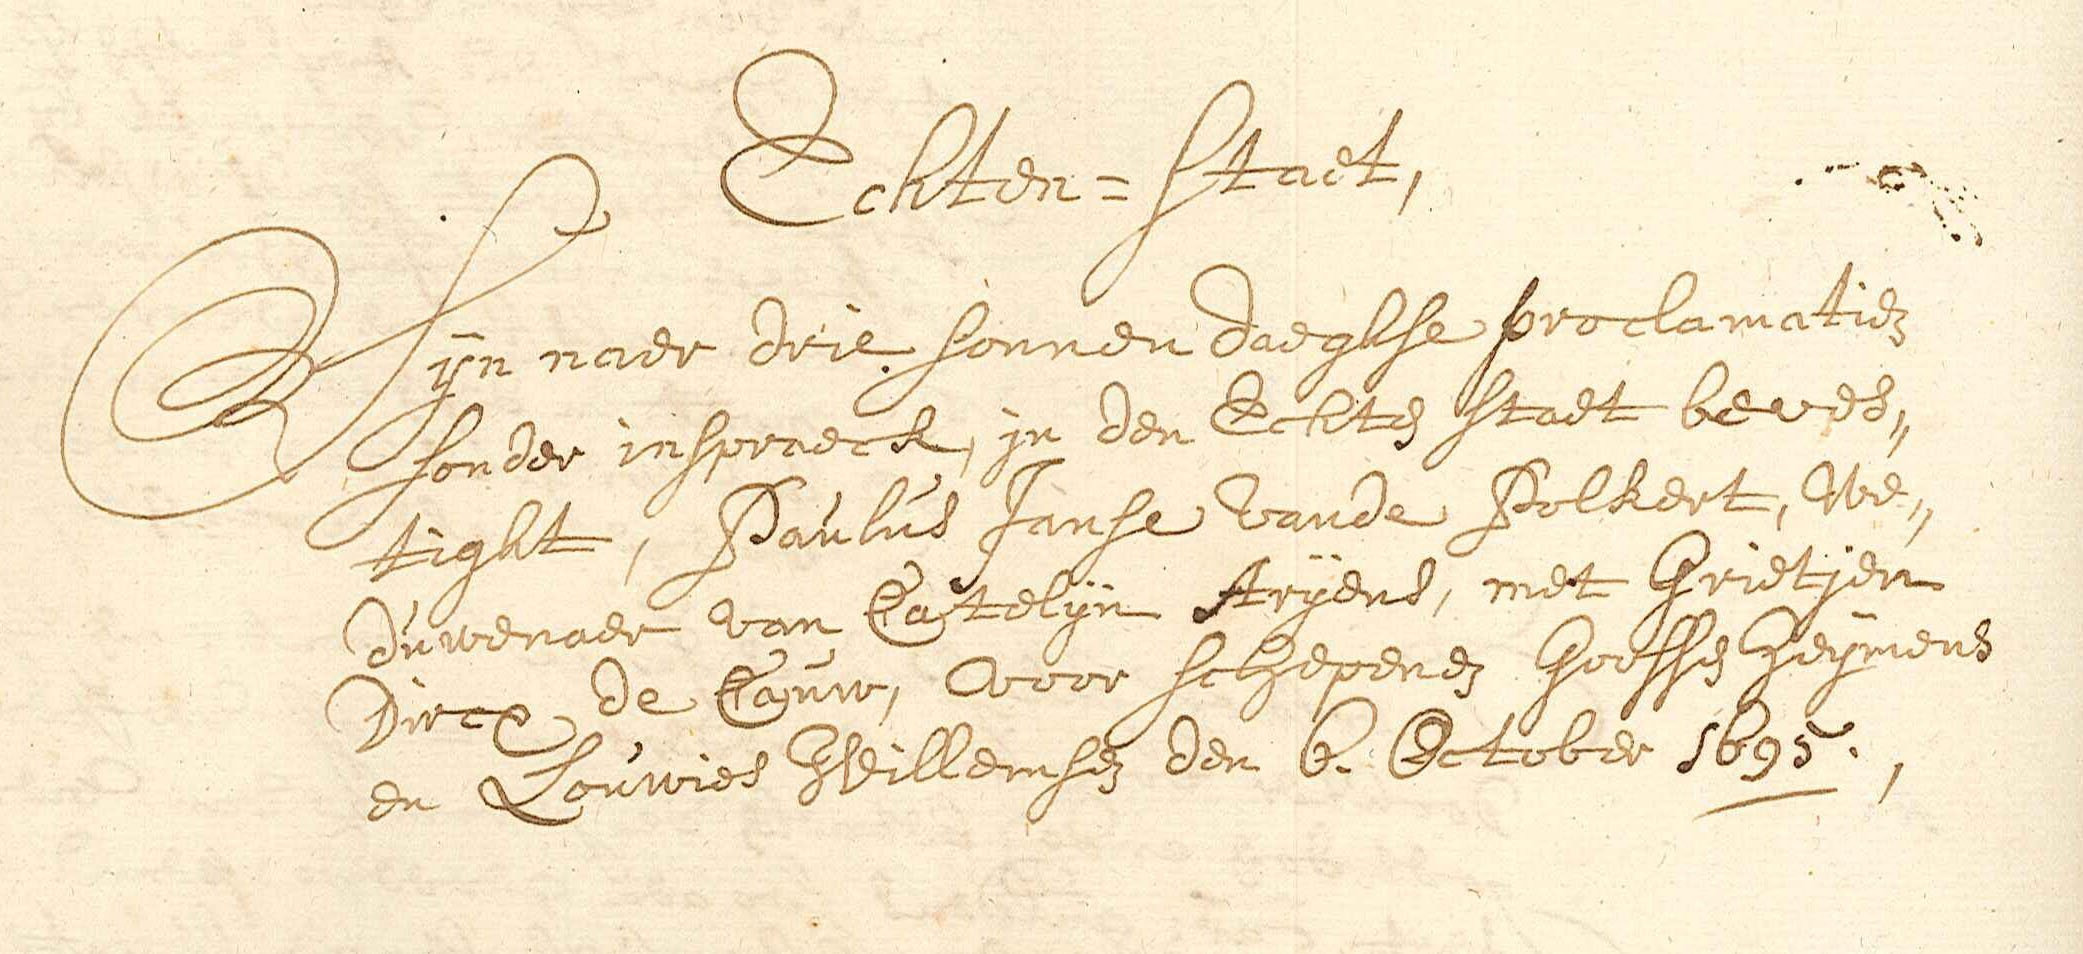 Echten=staet,
Sijn naer drie sonnen daeghse proclamatien
sonder inspraeck, in den Echten staet beves„
tight, Paulus Janse vande Polkert, We„
duwenaer van Catelijn Arijens, met Grietjen
Dircx de Cauw, voor schepenen Goossen Zeijmens
en Louwies Willemsen den 6. October 1695.,